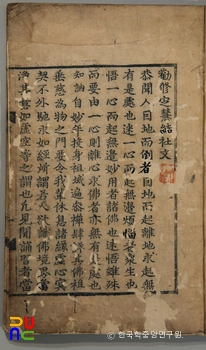 勸修定慧結社文
恭聞人因地而倒者因地而起離地求起無
有是處也迷一心而起無邊煩惱者衆生也
悟一心而起無邊妙用者諸佛也迷悟雖殊
而要由一心則離心求佛者亦無有是處也
知訥自妙年投身祖域遍參禪肆詳其佛祖
垂慈爲物之門要令我輩休息諸緣虛心冥
契不外馳求如經所謂若人欲識佛境界當
淨其意如虛空等之謂也凡見聞誦習者當
ⓒ 한국학중앙연구원.